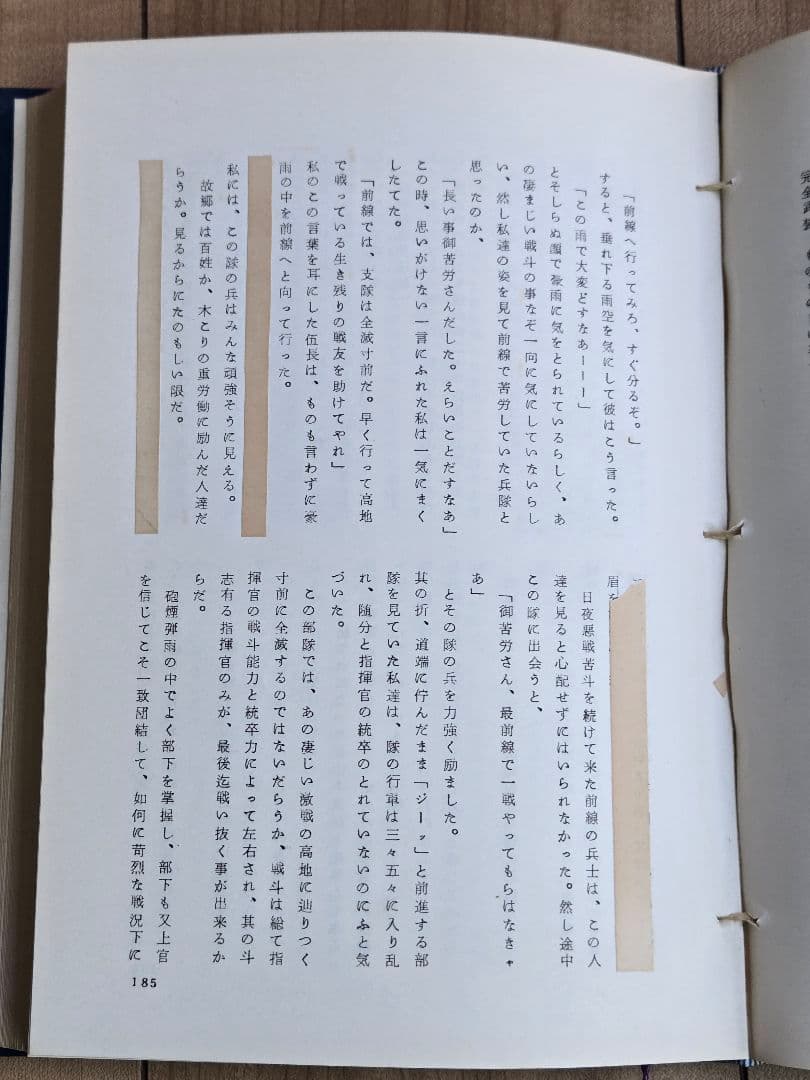 「前線へ行ってみろ、すぐ分るぞ。」
すると、垂れ下る雨空を気にして彼はこう言った。
「この雨で大変どすなあーーー」
とそしらぬ顔で豪雨に気をとられているらしく、あ
の凄まじい戦斗の事なぞ一向に気にしていないらし
い、然し私達の姿を見て前線で苦労していた兵隊と
思ったのか、
「長い事御苦労さんだした。えらいことだすなあ」
この時、思いがけない一言にふれた私は一気にまく
したてた。
「前線では、支隊は全滅寸前だ。早く行って高地
で戦っている生き残りの戦友を助けてやれ」
私のこの言葉を耳にした伍長は、ものも言わずに豪
雨の中を前線へと向って行った。
私には、この隊の兵はみんな頑強そうに見える。
故郷では百姓か、木こりの重労働に励んだ人達だ
らうか。見るからにたのもしい限だ。
眉を
日夜悪戦苦斗を続けて来た前線の兵士は、この人
達を見ると心配せずにはいられなかった。然し途中
この隊に出会うと、
「御苦労さん、最前線で一戦やってもらはなきゃ
あ」
とその隊の兵を力強く励ました。
其の折、道端に佇んだまま「ジーッ」と前進する部
隊を見ていた私達は、隊の行軍は三々五々に入り乱
れ、随分と指揮官の統卒のとれていないのにふと気
づいた。
この部隊では、あの凄じい激戦の高地に辿りつく
寸前に全滅するのではないだらうか、戦斗は総て指
揮官の戦斗能力と統卒力によって左右され、其の斗
志有る指揮官のみが、最後迄戦い抜く事が出来るか
らだ。
砲煙弾雨の中でよく部下を掌握し、部下も又上官
を信じてこそ一致団結して、如何に苛烈な戦況下に
185